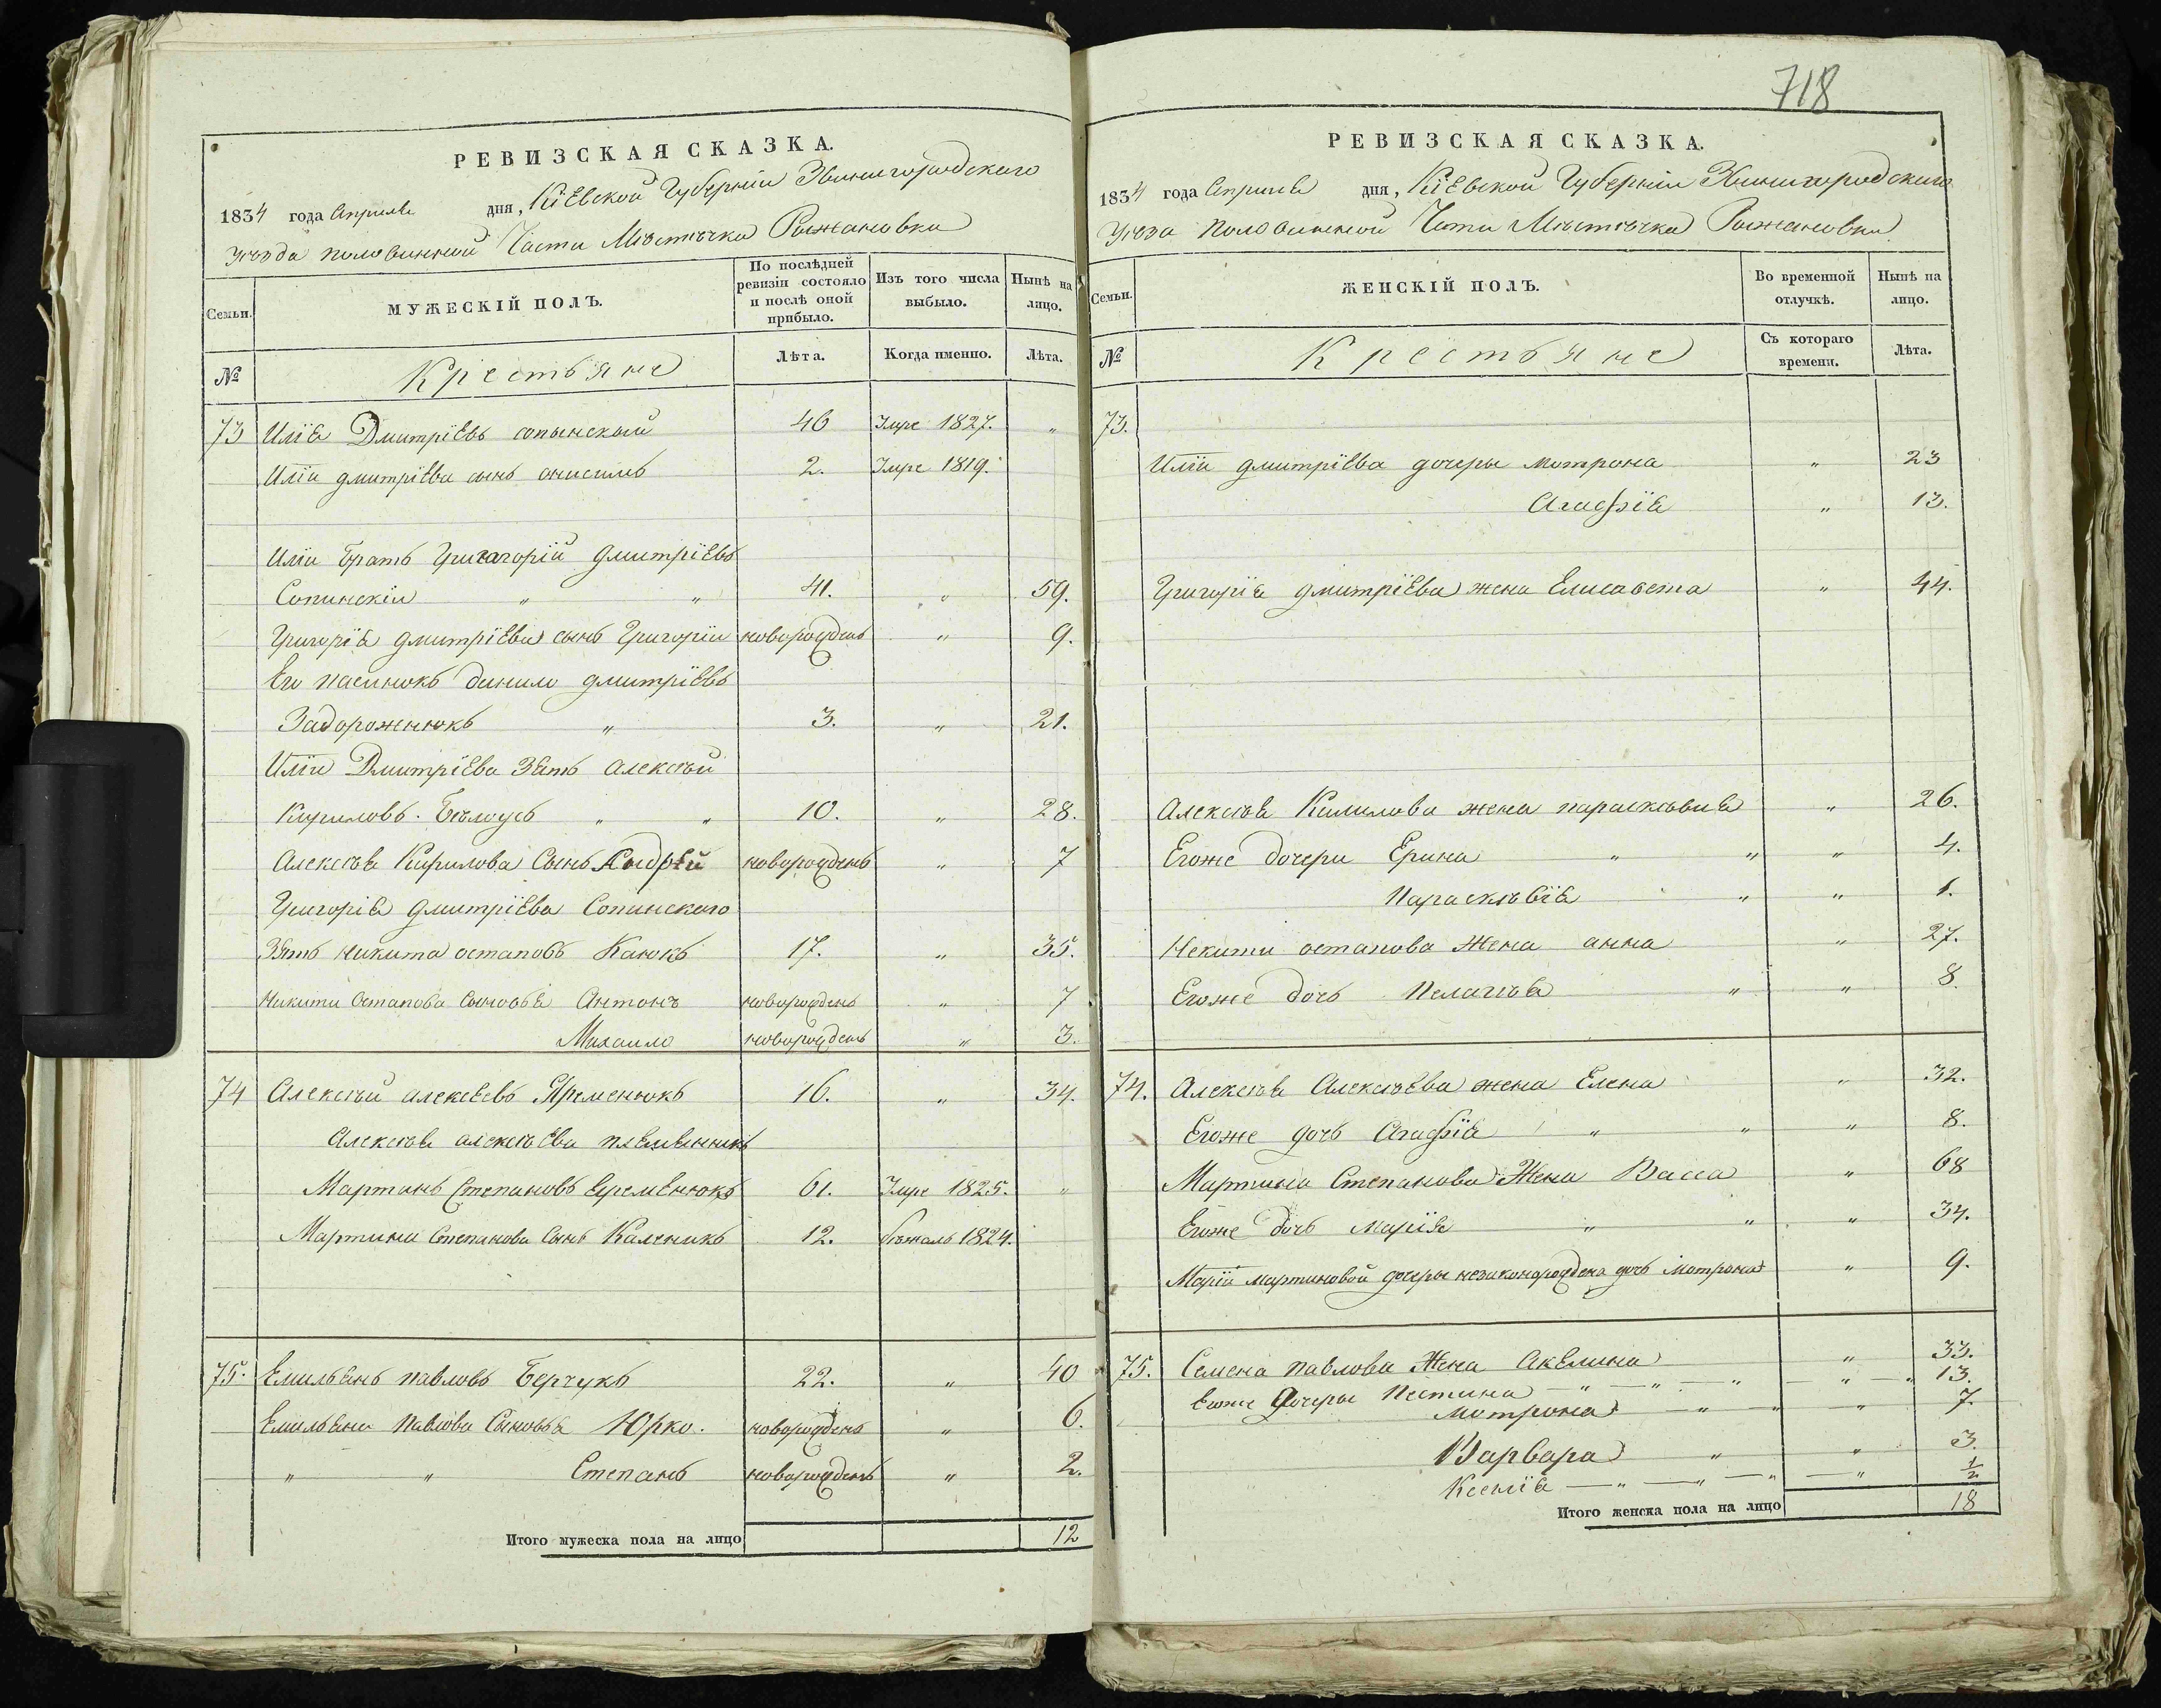 РЕВИЗСКАЯ СКАЗКА.
1834 года Апреля дня, Кіевской Губерніи Звинигородского
уѣзда половинной Части Мѣстѣчка Рыжановки
Семьи. МУЖЕСКІЙ ПОЛЪ. По послѣдней ревизіи состояло и послѣ оной прибыло. Изъ того числа выбыло. Нынѣ на лицо.
№ Крестьяне Лѣта. Когда именно. Лѣта.
73 Илія Дмитріевъ сопынскый 46 Змре 1827. "
Иліи дмитріева сынъ онисимъ 2. Змре 1819.
Иліи братъ Григорій дмитріевъ
Сопинскіи " " 41. " 59.
Григорія дмитріева сынъ Григоріи новорожденъ " 9.
Его пасинокъ данило дмитріевъ
Задороженюкъ " 3. " 21.
Иліи Дмитріева Зять алексѣй
Кириловъ. Бѣлоусъ " " 10. " 28.
Алексѣя Кирилова Сынъ новорожденъ " 7
Григорія дмитріева Сопинского
Зять Никита остаповъ Каюкъ 17. " 35.
Никити Остапова Сыновья Антонъ новорожденъ " 7
Михаило новорожденъ " 3.
74 Алексѣй алексеевъ Яременюкъ 16. " 34.
Алексѣя алексѣева племенникъ
Мартинъ Степановъ Еременюкъ 61. Змре 1825. "
Мартина Степанова Сынъ Каленикъ 12. бѣжалъ 1824.
75. Емильянъ павловъ Берчукъ 22. " 40
Емильяна Павлова Сыновья Юрко. новорожденъ " 6.
" " Степанъ новорожденъ " 2.
Итого мужеска пола на лицо 12
718
РЕВИЗСКАЯ СКАЗКА.
1834 года Апреля дня, Кіевской Губерніи Звинигородского
уѣзда половинной Части Мѣстѣчка Рыжановки
Семьи. ЖЕНСКІЙ ПОЛЪ. Во временной отлучкѣ. Нынѣ на лицо.
№ Крестьяне Съ котораго времени. Лѣта.
73.
Иліи дмитріева дочеры мотрона " 23
Агафія " 13.
Григорія дмитріева жена Елисавета " 44.
Алексѣя Килилова жена парасковия " 26.
Егоже дочери Ерина " " " 4.
Параскѣвія " " 1.
Некити остапова Жена анна " 27.
Егоже дочь Пелагѣя " " 8.
74. Алексѣя Алексѣева жена Елена " 32.
Егоже дочь Агафія " " " 8.
Мартина Степанова Жена Васса " 68
Егоже дочь марія " " " 34.
Маріи мартиновой дочеры незаконорождена дочь Мотрона " 9.
75. Семена павлова Жена Акелина " 33.
Егоже Дочеры Пестина " " " " " 13.
мотрона " " " 7.
Варвара " " 3.
Ксенія " " " " 1/2
Итого женска пола на лицо 18